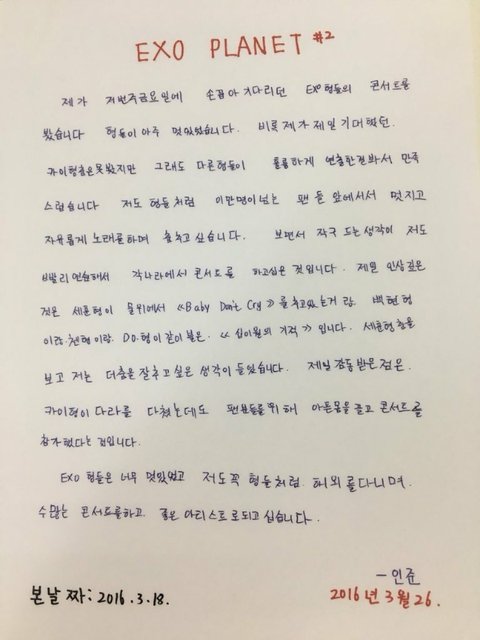 EXO PLANET #2
제가 저번주금요일에 손꼽아 기다리던 EXO형들의 콘서트를
봤습니다 형들이 아주 멋있었습니다. 비록 제가 제일 기대했던.
카이형춤은못봤지만 그래도 다른형들이 훌륭하게 연출한걸봐서 만족
스럽습니다 저도 형들처럼 이만명이넘는 팬들 앞에서서 멋지고
자유롭게 노래를하며 춤추고 싶습니다. 보면서 자꾸 드는생각이 저도
빨리 연습해서 각나라에서 콘서트를 하고싶은 것입니다. 제일 인상깊은
것은 세훈형이 물위에서 《Baby Don't Cry》를 추고있는거랑. 백현형
이랑.첸형이랑. DO.형이 같이 불은. 《십이월의 기적》입니다. 세훈형춤을
보고 저는 더춤을잘추고 싶은 생각이 들었습니다. 제일 감동받은점은.
카이형이 다리를 다쳤는데도 팬분들을위해 아픈몸을 끌고 콘서트를
참가했다는 것입니다.
EXO 형들은 너무 멋있었고 저도꼭 형들처럼. 해외를다니며.
수많는 콘서트를하고. 좋은 아티스트로되고 싶습니다.
-인준
본날짜: 2016.3.18. 2016년 3월 26.